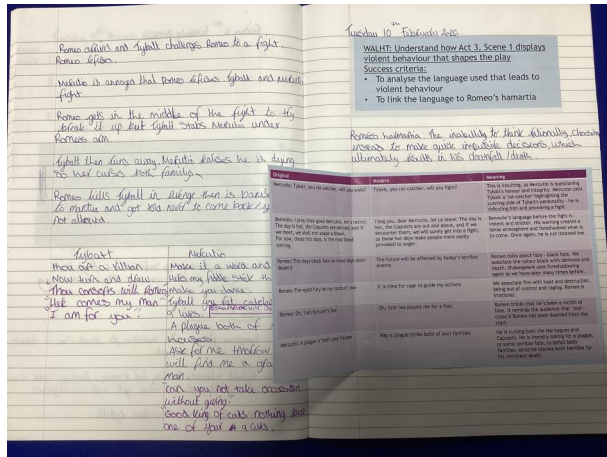 Romeo arrives and Tybalt challenges Romeo to a fight.
Romeo refuses.
Mercutio is annoyed that Romeo refuses Tybalt and
fight.
Romeo gets in the middle of the fight to try
break it up but Tybalt stabs Mercutio under
Romeos arm.
Tybalt then runs away. Mercutio realises he is dying
so her curses both family
Romeo kills Tybalt in revenge then is
to and got told never to come back
not allowed.
Tybalt
thou art a villan.
Now turn and draw
Thou consorts with Romeo
"Here comes my man"
"I am for you."
Mercutio
Make it a word and
Heres my fiddle stick
Make you dance
Tybalt you rat catcher
9 lives
A plague both of
houses.
Ask for me tmolow
will find me a gra
man.
"can you not take occasion
without giving"
"Good king of cats nothing but
one of your 9 lives.
Tuesday 10th February
WALHT: Understand how Act 3, Scene 1 displays
violent behaviour that shapes the play
Success criteria:
• To analyse the language used that leads to
violent behaviour
• To link the language to Romeo's hamartia
Romeos hamartia: The inability to think rationally, choosing
instead to make quick impulsive decisions, which
ultimately results in his downfall/death.
Original
Modern
Meaning
Mercutio: Tybalt, you rat-catcher, will you walk?
Tybalt, you rat-catcher, will you fight?
This is insulting, as Mercutio is questioning
Tybalt's honour and integrity. Mercutio calls
Tybalt a 'rat-catcher' highlighting the
cunning side of Tybalt's personality - he is
ridiculing him and provoking a fight.
Benvolio: I pray thee good Mercutio, let's retire:
The day is hot, the Capulets are abroad, and if
we meet, we shall not scape a brawl,
For now, these hot days, is the mad blood
stirring.
I beg you, dear Mercutio, let us leave! The day is
hot, the Capulets are out and about, and if we
encounter them, we will surely get into a fight,
as these hot days make people more easily
provoked to anger.
Benvolio's language before the fight is
violent and sinister. His warning creates a
tense atmosphere and foreshadows what is
to come. Once again, he is not listened too.
Romeo: This days black fate on more days doth
depend.
The future will be affected by today's terrible
events.
Romeo talks about fate - black fate. We
associate the colour black with darkness and
death. Shakespeare uses foreshadowing
again as we have seen many times before.
Romeo: Fire-eyed fury be my conduct now
It is time for rage to guide my actions
We associate fire with heat and destruction,
being out of control and raging. Romeo is
irrational.
Romeo: Oh, I am fortune's fool
Oh, fate has played me for a fool.
Romeo thinks that he's been a victim of
fate. It reminds the audience that 'star-
cross'd Romeo has been doomed from the
start.
Mercutio: A plague o' both your houses
May a plague strike both of your families
He is cursing both the Montagues and
Capulets. He is literally asking for a plague,
or some terrible fate, to befall both
families, since he blames both families for
his imminent death.